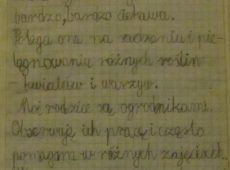 bardzo, bardzo ciekawa.
Polega ona na sadzeniu i pie-
lęgnowaniu różnych roślin
- kwiatów i warzyw.
Moi rodzice są ogrodnikami.
Obserwuję ich pracę i często
pomagam w różnych zajęciach.